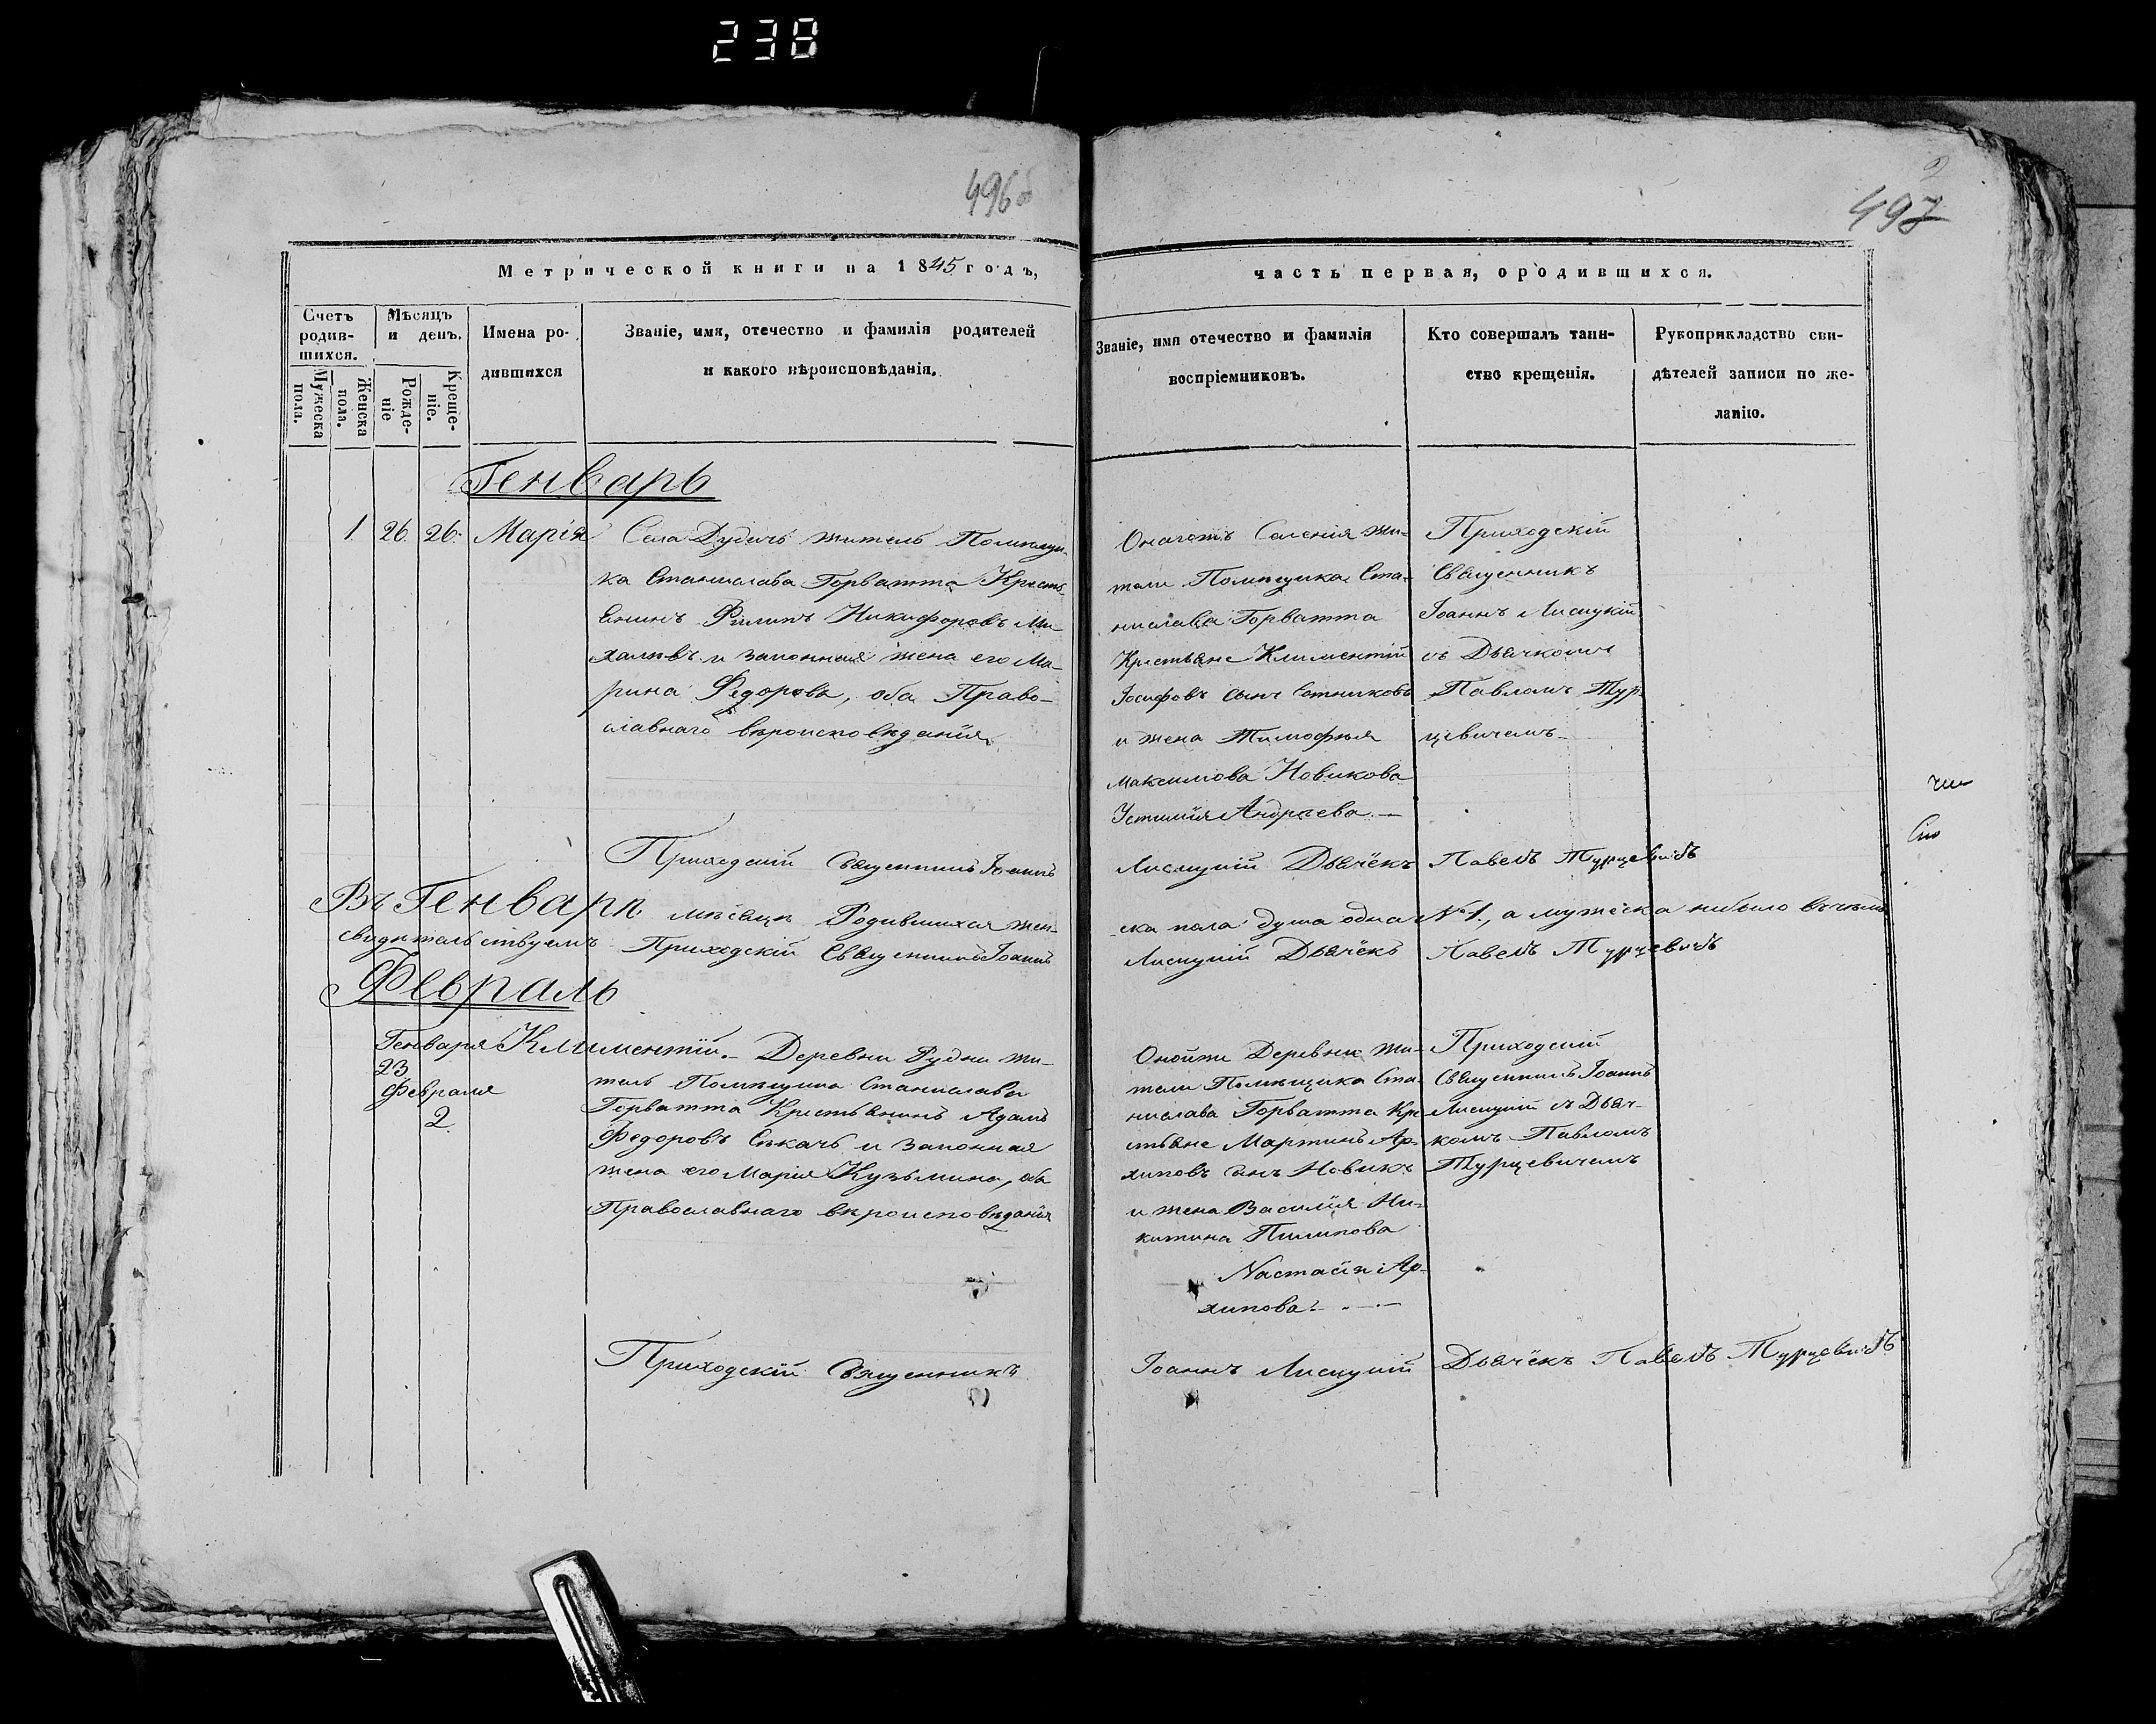 238
496 об
497
Метрической книги на 1845 годъ,
часть первая, ородившихся.
Счетъ родив-шихся.
Мужеска пола.
Женска пола.
Мѣсяцъ и день.
Рожде-ніе
Креще-ніе.
Имена ро-
дившихся
Званіе, имя, отечество и фамилія родителей
и какого вѣроисповѣданія.
Званіе, имя отечество и фамилія
воспріемниковъ.
Кто совершалъ таин-
ство крещенія.
Рукоприкладство сви-
дѣтелей записи по же-
ланію.
Генварь
1 26. 26. Марія
Села Дудичь житель Помѣщи-
ка Станислава Горватта Кресть-
янинъ Филипъ Никифоровъ Ми
халивъ и законная жена его Ма-
рина Федорова, оба Право-
славнаго вѣроисповѣданія
Оначожъ Селенія жи-
тели Помѣщика Ста-
нислава Горватта
Крестьяне Климентій
Іосифовъ сынъ
и жена Тимофѣя
Максимова Новикова
Устинія Андреева.—
Приходскій
Священникъ
Іоаннъ Лисицкій
съ Дьячкомъ
Павломъ Тур
цевичемъ
Приходскій Священникъ Іоаннъ
Лисицкій Дьячёкъ Павелъ Турцевичъ
Въ Генварѣ мѣсяцѣ Родившихся жен-
ска пола душа одна №1, а мужеска небыло въчемъ
свидѣтельствуемъ Приходскій Священникъ Іоаннъ
Лисицкій Дьячёкъ Павелъ Турцевичъ
Февраль
Генваря
23
Февраля
2
Климентій.—
Деревни Рудни жи-
тель Помѣщика Станислава
Горватта Крестьянинъ Адамъ
Федоровъ Сѣкачь и законная
жена его Марія Кузьмина, оба
Православнаго вѣроисповѣданія
Онойже Деревни жи-
тели Помѣщика Ста-
нислава Горватта Кре
стьяне Мартинъ Ар-
хиповъ сынъ Новикъ
и жена Василія Ни-
китина Пилипова
Настасія Ар-
хипова.
Приходскій
Священникъ Іоаннъ
Лисицкій съ Дьяч-
комъ Павломъ
Турцевичемъ
Приходскій Священникъ
Іоаннъ Лисицкій Дьячёкъ Павелъ Турцевичъ